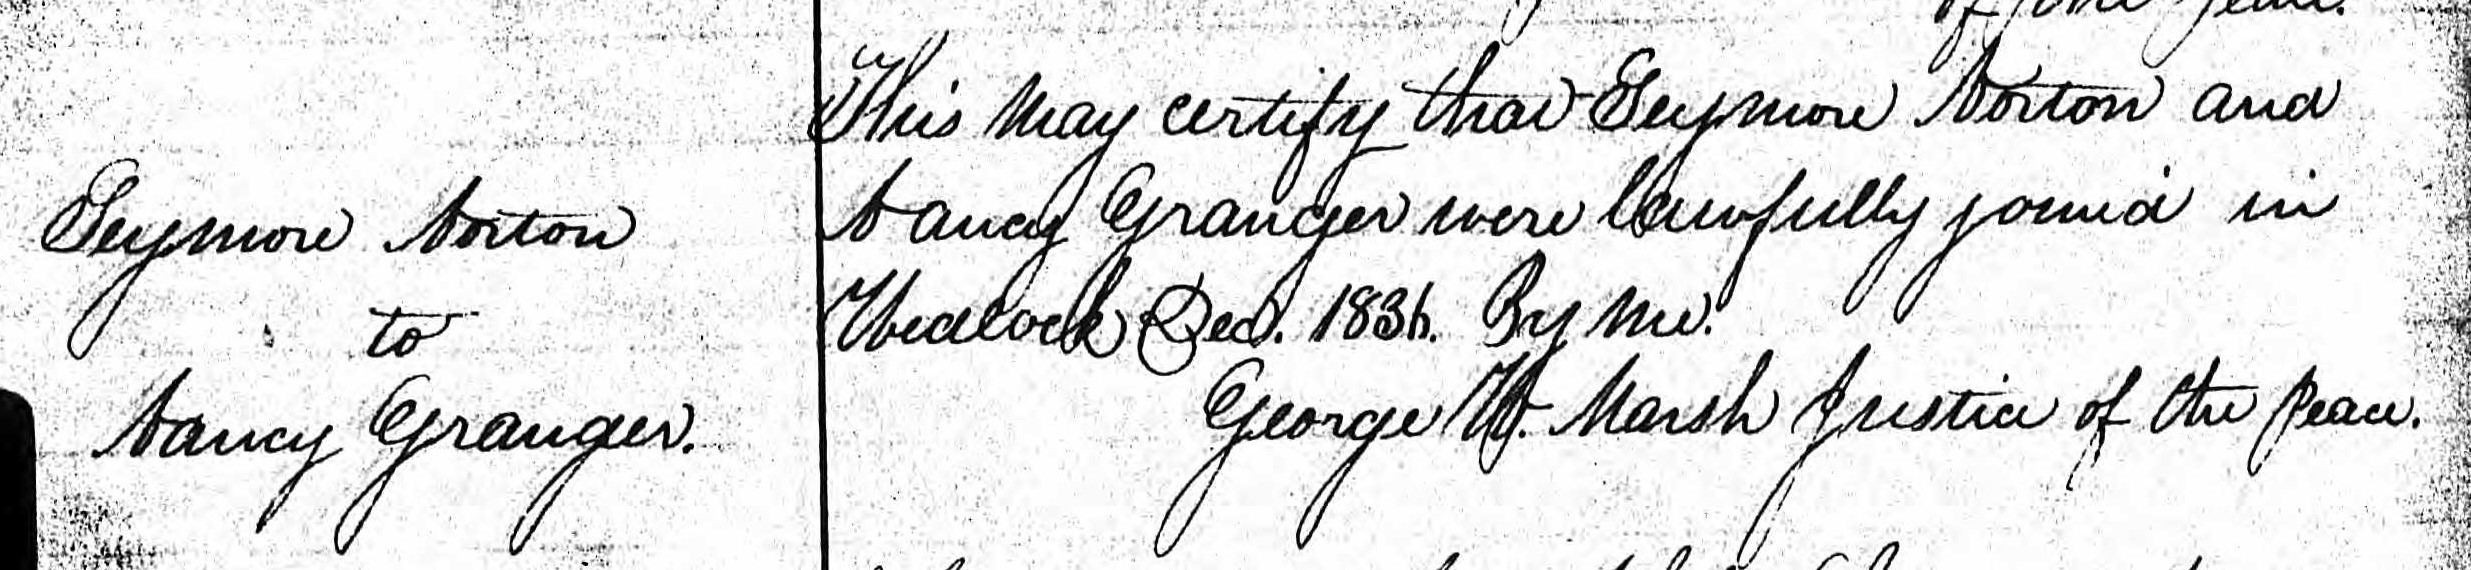 of the Peace.
This May certify that Seymore Norton and
Nancy Granger were lawfully joined in
Wedlock Dec. 1836. By Me.
George W. Marsh Justice of the Peace.
Seymore Norton
to
Nancy Granger.